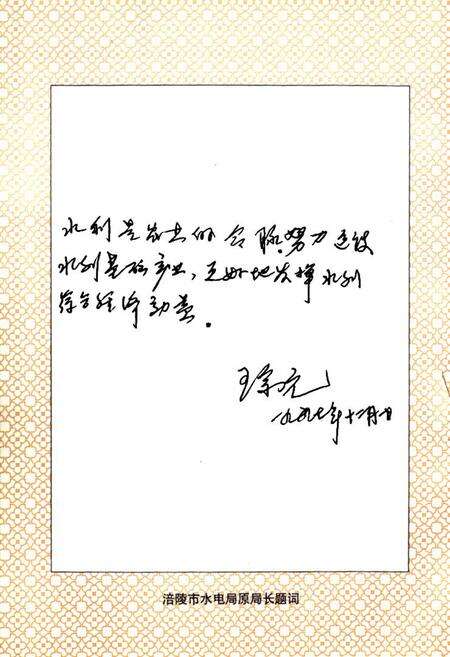 水利是农业的命脉,努力建设
水利基础产业,更好地发挥水利
综合经济效益。
王宗元
一九九七年十二月一日
涪陵市水电局原局长题词